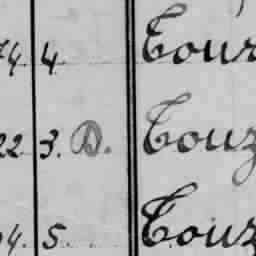 74. 4 Tour
22 3. D. Touz
94. 5. Touz